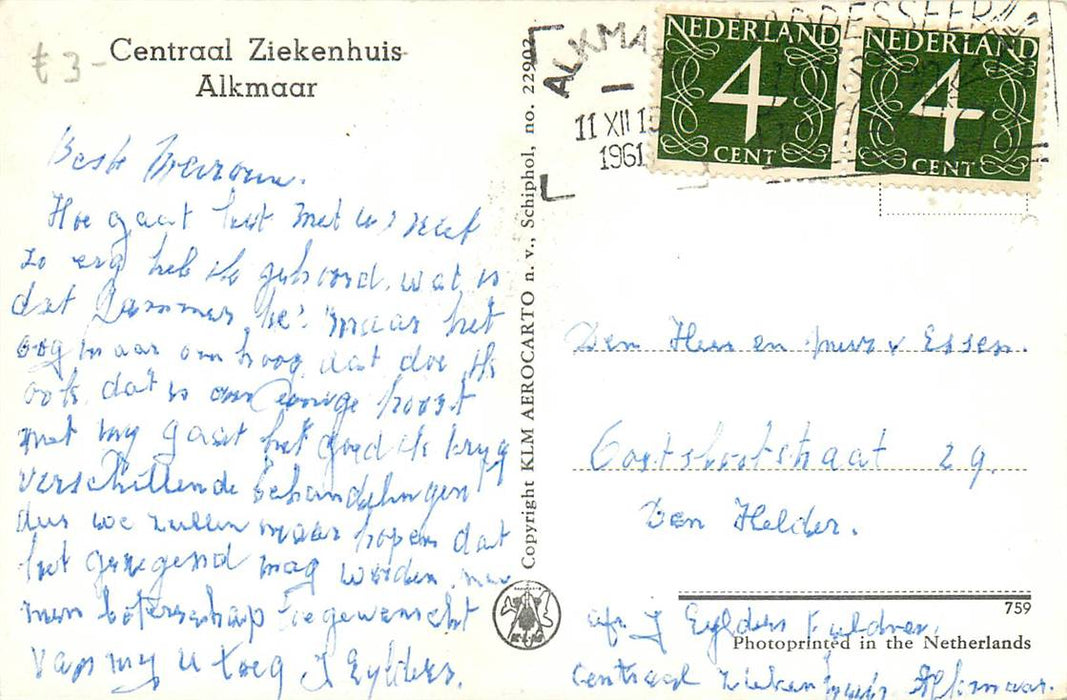 € 3-
Centraal Ziekenhuis
Alkmaar
Beste Mevrouw.
Hoe gaat het met U? niet
zo erg heb ik gehoord. wat is
dat Jammer hé! maar het
oog maar omhoog dat doe ik
ook dat is onze eenige troost
met my gaat het goed ik kryg
verschillende behandelingen
dus we zullen maar hopen dat
het gezegend mag worden. nu
mijn beterschap toegewenscht
van my U toeg J Eylders.
Copyright KLM AEROCARTO n. v., Schiphol, no. 22902
ALKMA
11 XII 1
1961
NEDERLAND
4
CENT
NEDERLAND
4
CENT
Den Heer en mevr v Essen.
Oostslootstraat 29.
Den Helder.
759
afz J Eylders
Photoprinted in the Netherlands
Centraal Ziekenhuis Alkmaar.
KLM